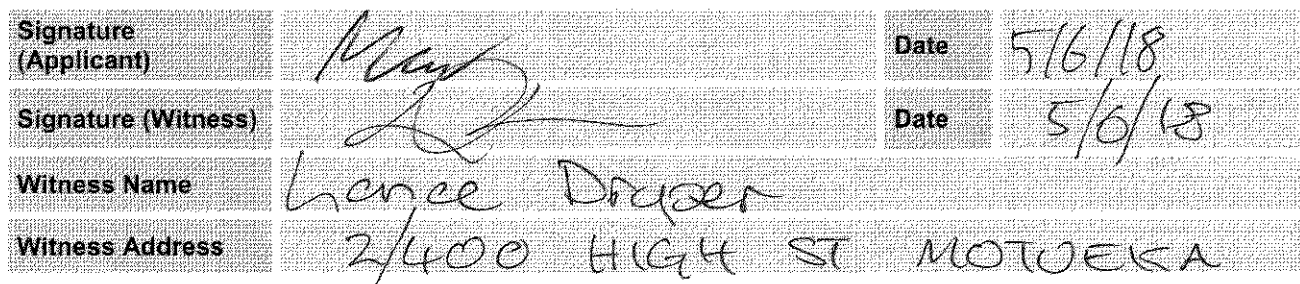 Signature
(Applicant) Date 5/6/18
Signature (Witness) Date 5/6/18
Witness Name Lance Draper
Witness Address 2/400 HIGH ST MOTUEKA